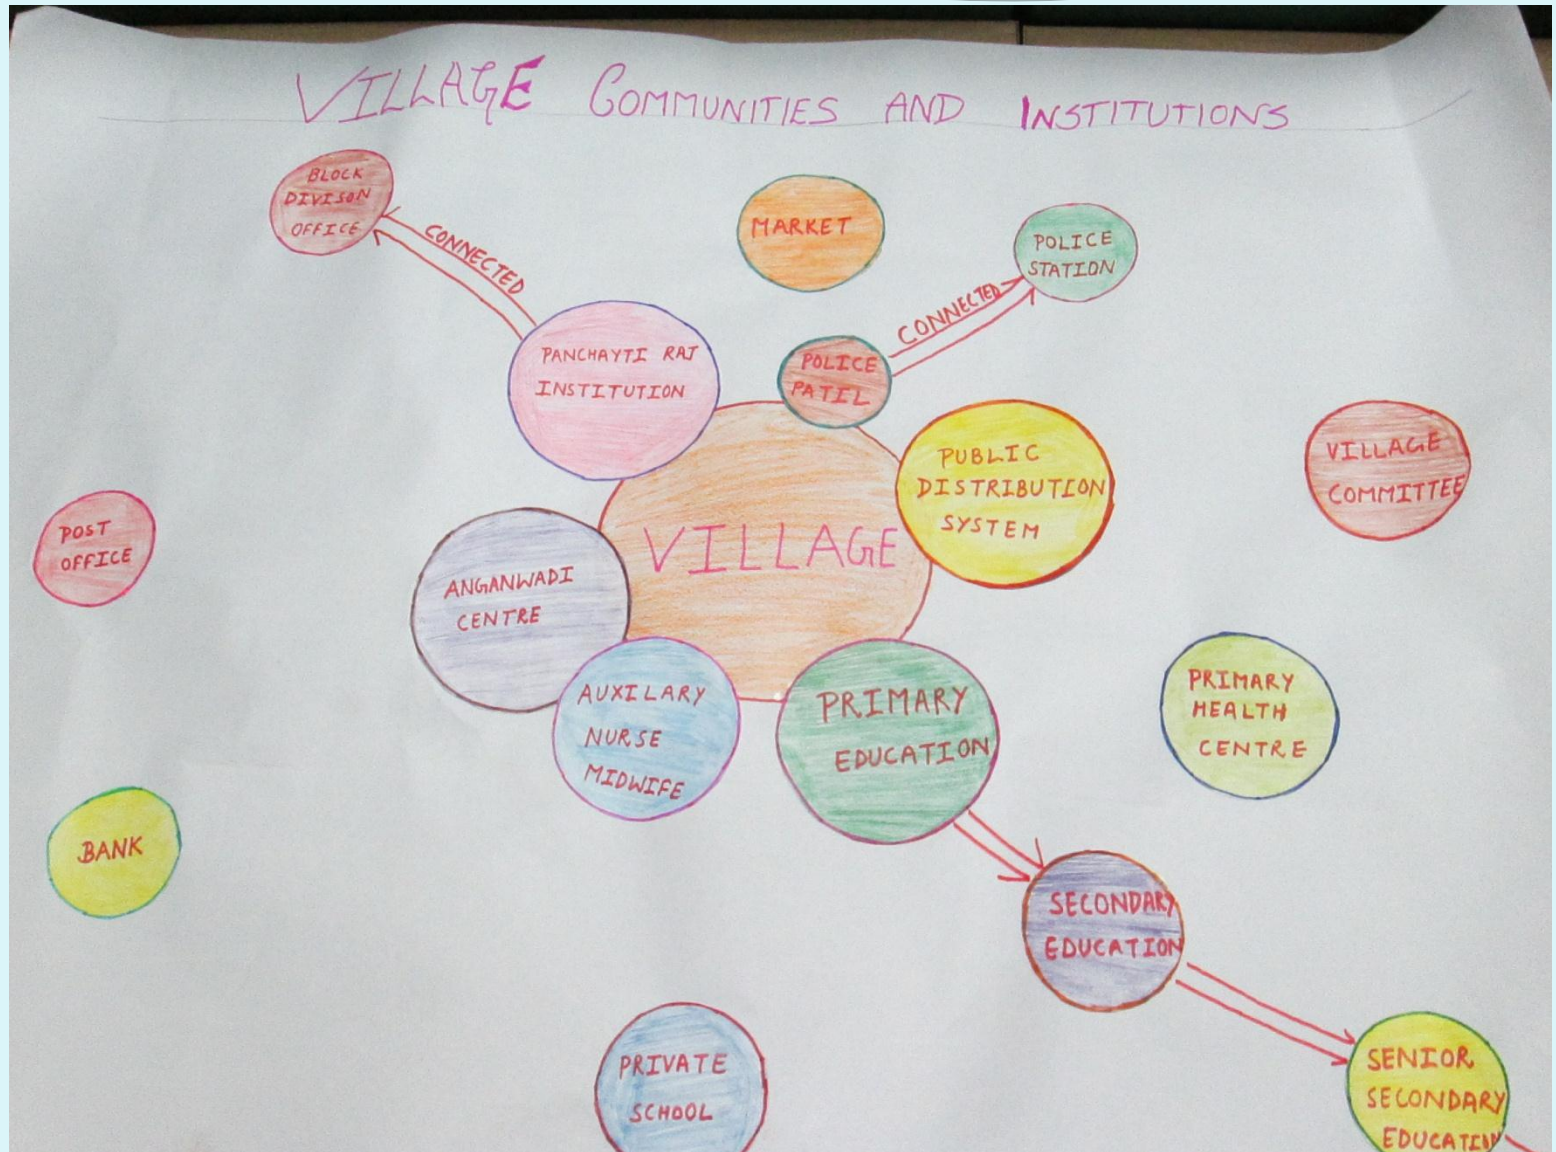 VILLAGE COMMUNITIES AND INSTITUTIONS
BLOCK
DIVISON
OFFICE
CONNECTED
MARKET
POLICE
STATION
CONNECTED
PANCHAYTI RAJ
INSTITUTION
POLICE
PATIL
PUBLIC
DISTRIBUTION
SYSTEM
VILLAGE
COMMITTEE
POST
OFFICE
VILLAGE
ANGANWADI
CENTRE
AUXILARY
NURSE
MIDWIFE
PRIMARY
EDUCATION
PRIMARY
HEALTH
CENTRE
BANK
SECONDARY
EDUCATION
PRIVATE
SCHOOL
SENIOR
SECONDARY
EDUCATION